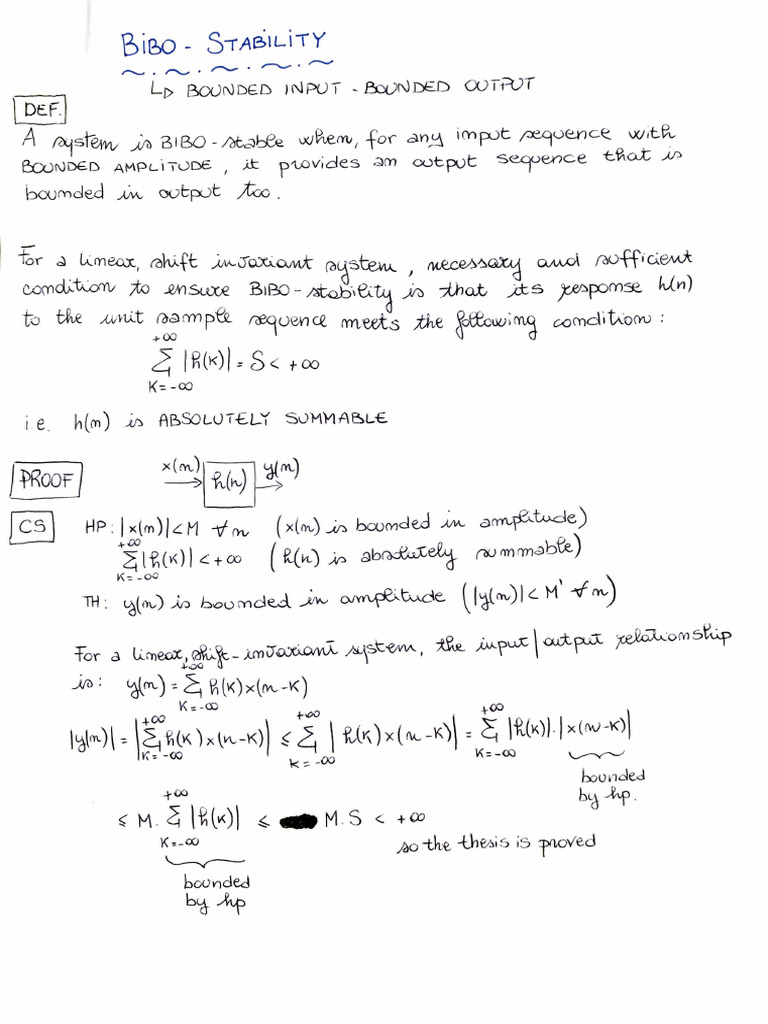 BIBO - STABILITY
↳ BOUNDED INPUT - BOUNDED OUTPUT
DEF.
A system is BIBO-stable when, for any input sequence with
BOUNDED AMPLITUDE, it provides an output sequence that is
bounded in output too.
For a linear, shift invariant system, necessary and sufficient
condition to ensure BIBO-stability is that its response h(n)
to the unit sample sequence meets the following condition:
+∞
Σ |h(k)| = S < +∞
K=-∞
i.e. h(n) is ABSOLUTELY SUMMABLE
PROOF
x(n) → h(n) → y(n)
CS
HP: |x(n)| < M ∀n (x(n) is bounded in amplitude)
+∞
Σ |h(k)| < +∞ (h(n) is absolutely summable)
K=-∞
TH: y(n) is bounded in amplitude (|y(n)| < M' ∀n)
For a linear, shift-invariant system, the input/output relationship
+∞
is: y(n) = Σ h(k) x(n-k)
K=-∞
+∞ +∞ +∞
|y(n)| = |Σ h(k) x(n-k)| ≤ Σ |h(k) x(n-k)| = Σ |h(k)|·|x(n-k)|
K=-∞ K=-∞ K=-∞
bounded
by hp.
+∞
≤ M· Σ |h(k)| ≤ M·S < +∞
K=-∞
so the thesis is proved
bounded
by hp